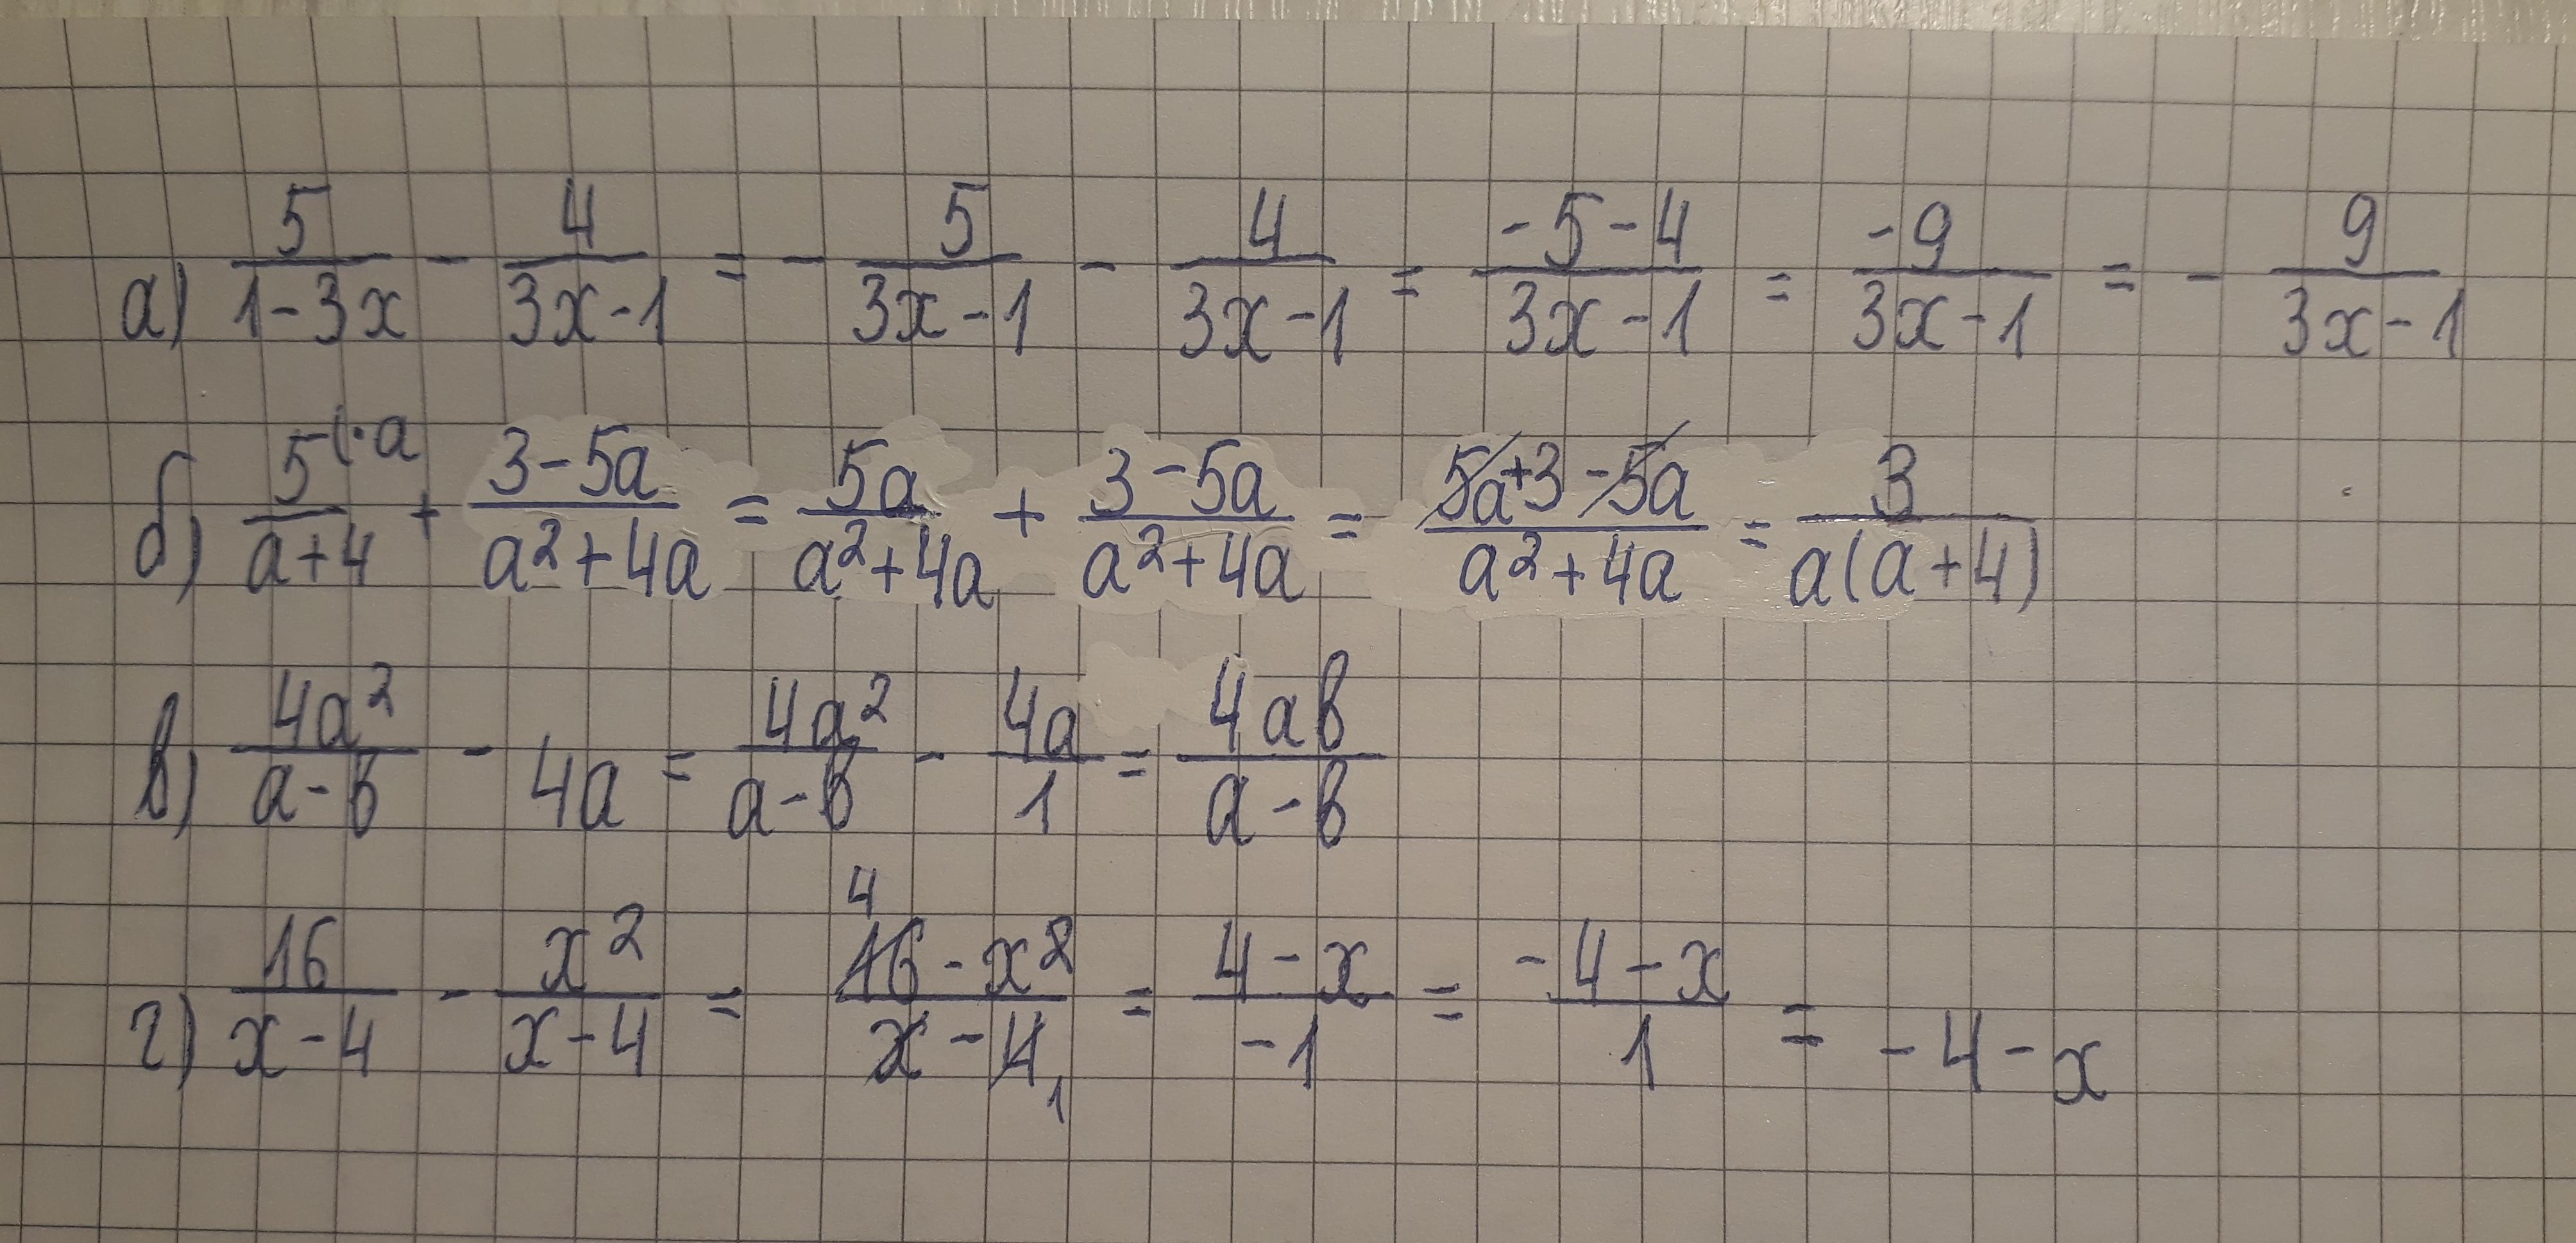 а) 5/(1-3x) - 4/(3x-1) = - 5/(3x-1) - 4/(3x-1) = (-5-4)/(3x-1) = -9/(3x-1) = - 9/(3x-1)
б) 5(·a/(a+4) + (3-5a)/(a²+4a) = 5a/(a²+4a) + (3-5a)/(a²+4a) = (5a+3-5a)/(a²+4a) = 3/(a(a+4))
в) 4a²/(a-b) - 4a = 4a²/(a-b) - 4a/1 = 4ab/(a-b)
4
г) 16/(x-4) - x²/(x-4) = (16-x²)/(x-4) = (4-x)/-1 = (-4-x)/1 = -4-x
1